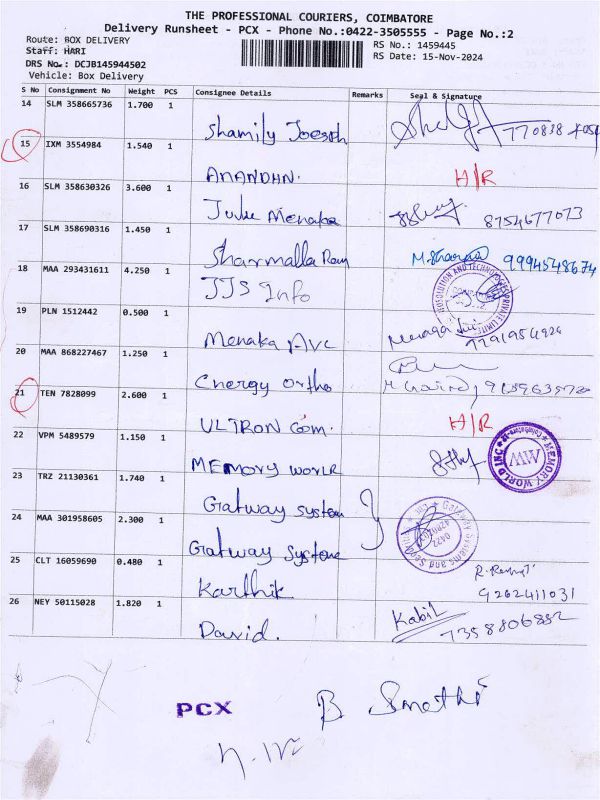 THE PROFESSIONAL COURIERS, COIMBATORE
Delivery Runsheet - PCX - Phone No.:0422-3505555 - Page No.:2
Route: BOX DELIVERY RS No.: 1459445
Staff: HARI RS Date: 15-Nov-2024
DRS No.: DCJB145944502
Vehicle: Box Delivery
S No Consignment No Weight PCS Consignee Details Remarks Seal & Signature
14 SLM 358665736 1.700 1
Shamily Joesph
15 IXM 3554984 1.540 1
ANANDHN. H/R
16 SLM 358630326 3.600 1
Julie Menaka 8754677073
17 SLM 358690316 1.450 1
Sharmalla Ram M.Sharmila 9994548674
18 MAA 293431611 4.250 1
JJS Info
19 PLN 1512442 0.500 1
Menaka Ave 7791954924
20 MAA 868227467 1.250 1
Energy Ortho
21 TEN 7828099 2.600 1
ULTRON Com. H/R
22 VPM 5489579 1.150 1
MEMORY WORLR
MEMORY WORLD INC Coimbatore
MW
23 TRZ 21130361 1.740 1
Gatway System
24 MAA 301958605 2.300 1
Gatway Systone
Gateway Systems and
0422
25 CLT 16059690 0.480 1
Karthik 9262411031
26 NEY 50115028 1.820 1
David. Kabil 7358806882
PCX B Smathi